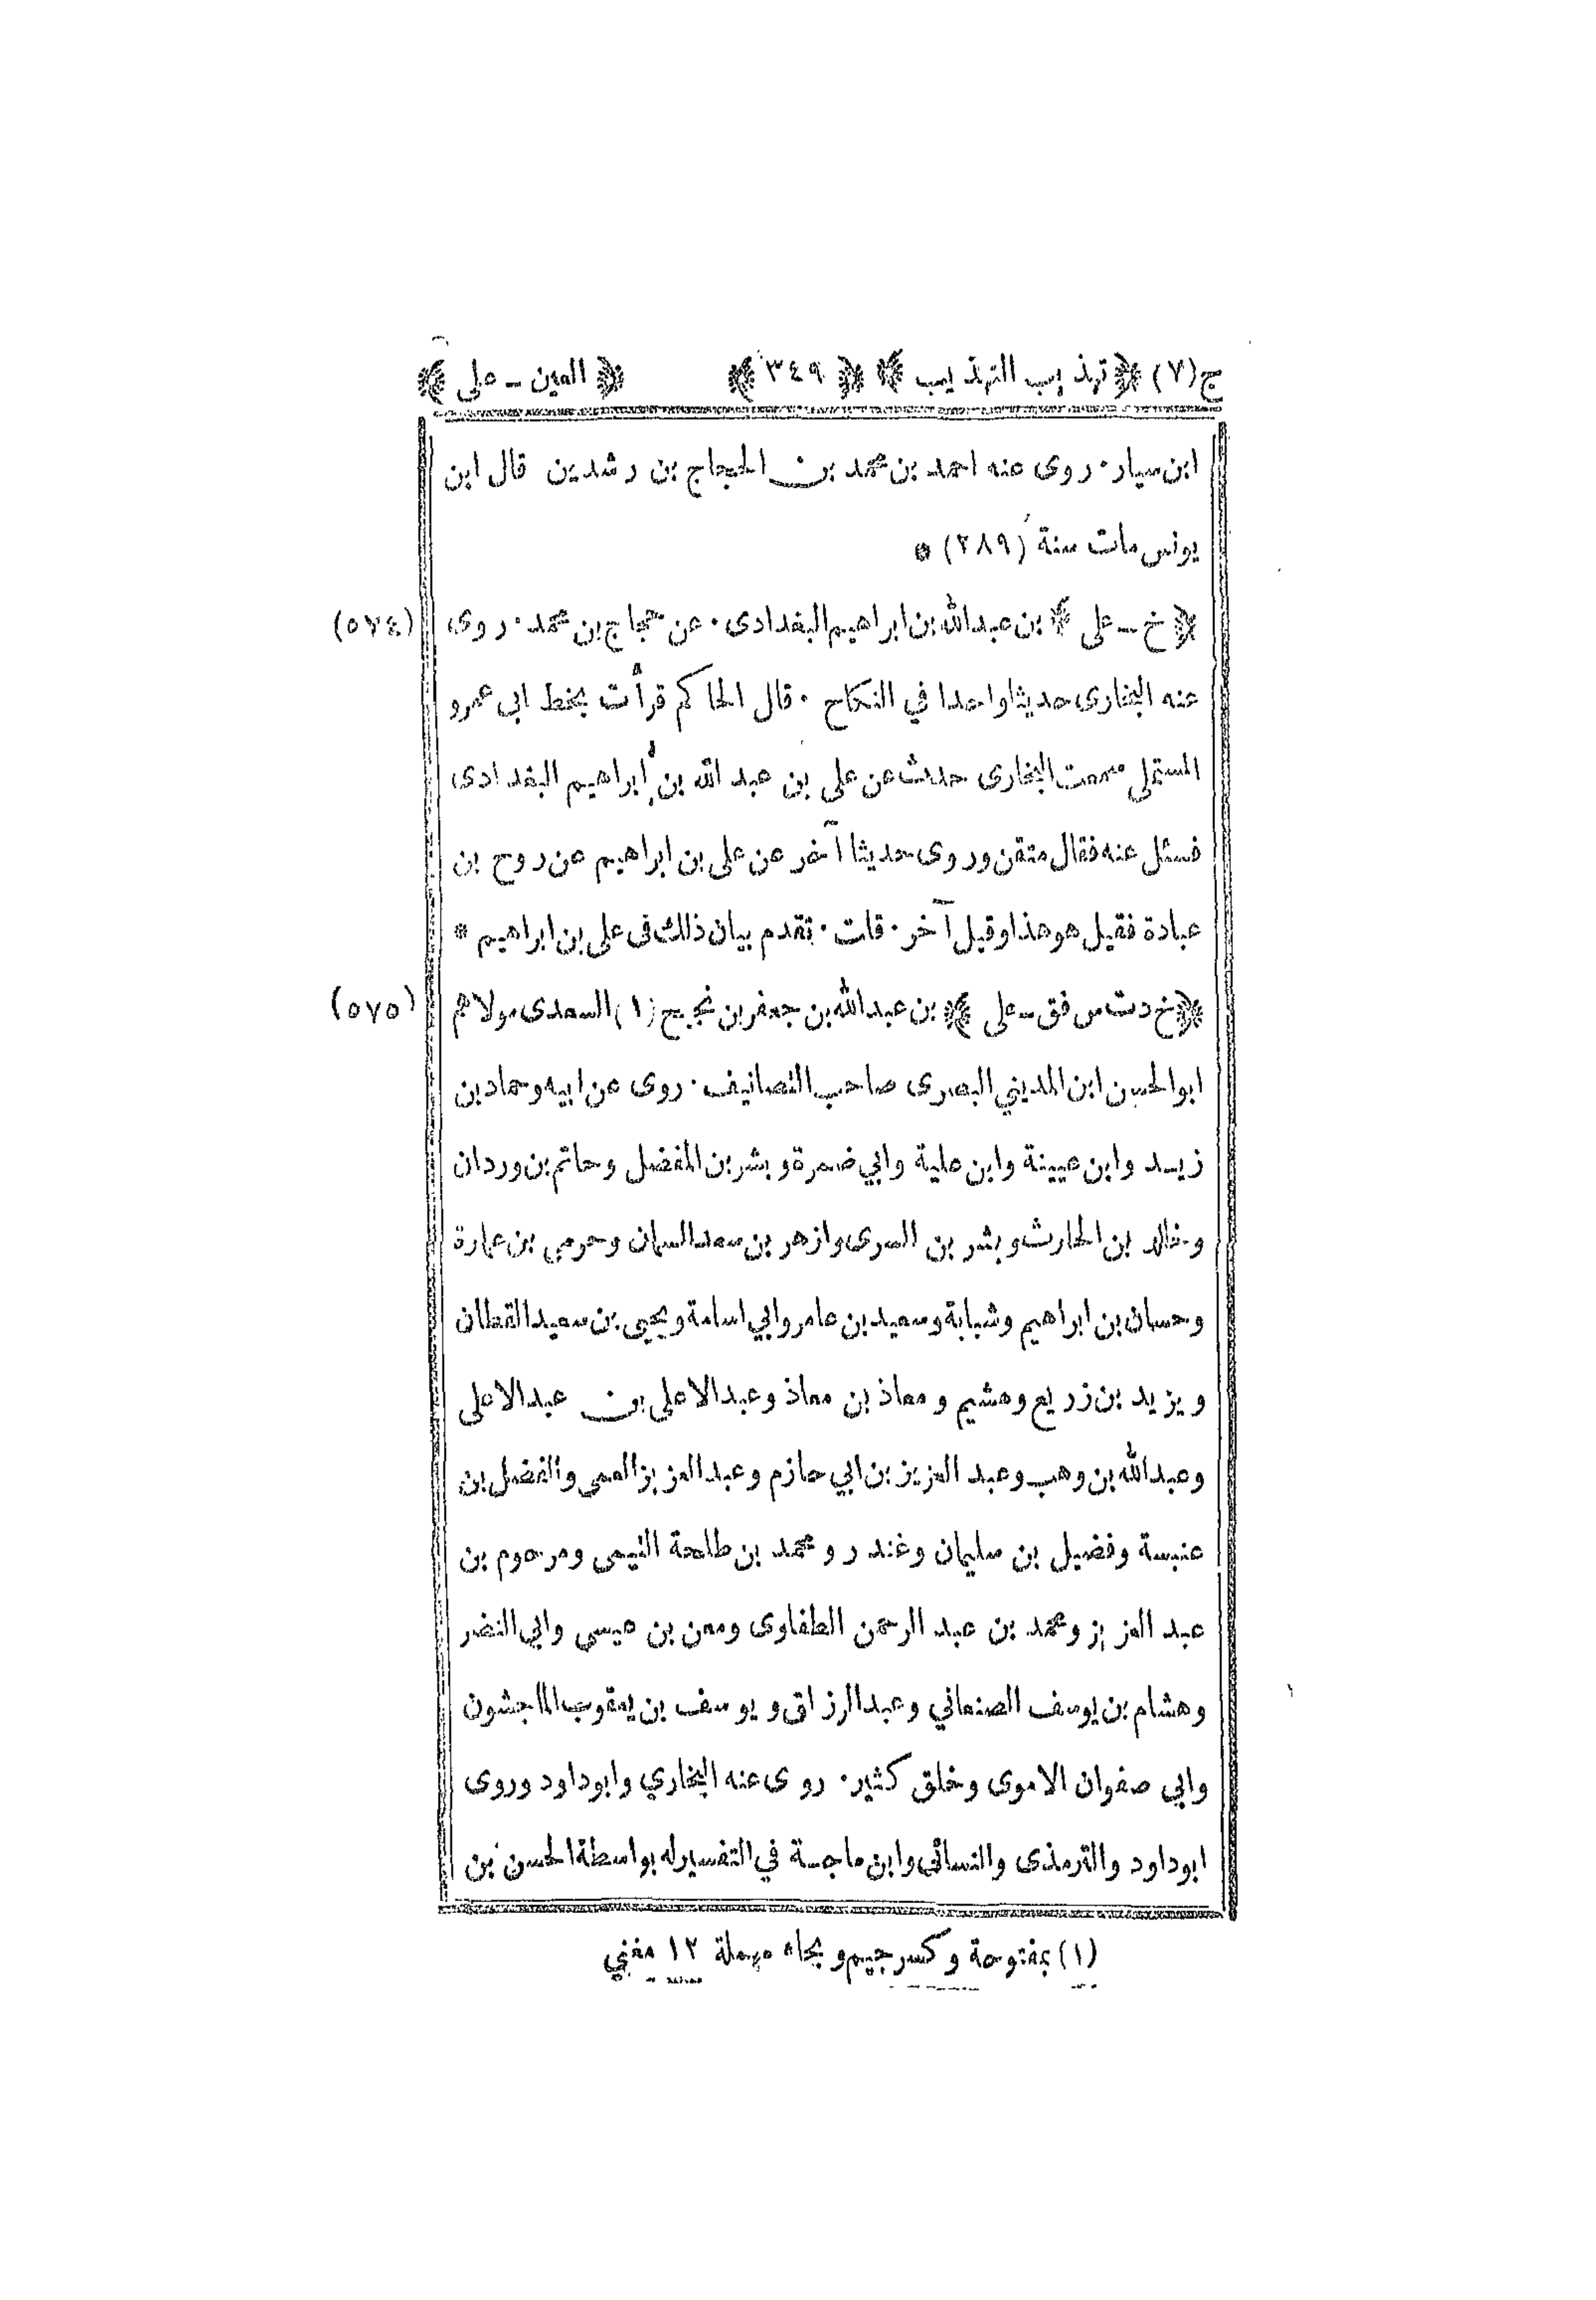 ج(٧) ﴿تهذيب التهذيب﴾ ﴿٣٤٩﴾ ﴿العين - على﴾
ابن سيار · روى عنه احمد بن محمد بن الحجاج بن رشدين قال ابن
يونس مات سنة (٢٨٩) *
﴿خ - على﴾ بن عبدالله بن ابراهيم البغدادى · عن حجاج بن محمد · روى (٥٧٤)
عنه البخارى حديثا واحدا في النكاح · قال الحاكم قرأت بخط ابى عمرو
المستملى سمعت البخارى حدث عن على بن عبد الله بن إبراهيم البغدادى
فسئل عنه فقال متقن وروى حديثا آخر عن على بن ابراهيم عن روح بن
عبادة فقيل هو هذا وقيل آخر · قلت · تقدم بيان ذلك فى على بن ابراهيم *
﴿خ د ت س فق - على﴾ بن عبدالله بن جعفر بن نجيح (١) السعدى مولاهم (٥٧٥)
ابوالحسن ابن المديني البصرى صاحب التصانيف · روى عن ابيه وحماد بن
زيد وابن عيينة وابن علية وابي ضمرة وبشر بن المفضل وحاتم بن وردان
وخالد بن الحارث وبشر بن السرى وازهر بن سعد السمان وحرمى بن عمارة
وحسان بن ابراهيم وشبابة وسعيد بن عامر وابي اسامة ويحيى بن سعيد القطان
ويزيد بن زريع وهشيم ومعاذ بن معاذ وعبدالاعلى بن عبدالاعلى
وعبدالله بن وهب وعبد العزيز بن ابي حازم وعبد العزيز العمى والفضل بن
عنبسة وفضيل بن سليمان وغندر ومحمد بن طلحة التيمى ومرحوم بن
عبد العزيز ومحمد بن عبد الرحمن الطفاوى ومعن بن عيسى وابي النضر
وهشام بن يوسف الصنعاني وعبدالرزاق ويوسف بن يعقوب الماجشون
وابي صفوان الاموى وخلق كثير · روى عنه البخاري وابوداود وروى
ابوداود والترمذى والنسائى وابن ماجة في التفسير له بواسطة الحسن بن
(١) بمفتوحة وكسر جيم و بحاء مهملة ١٢ مغني